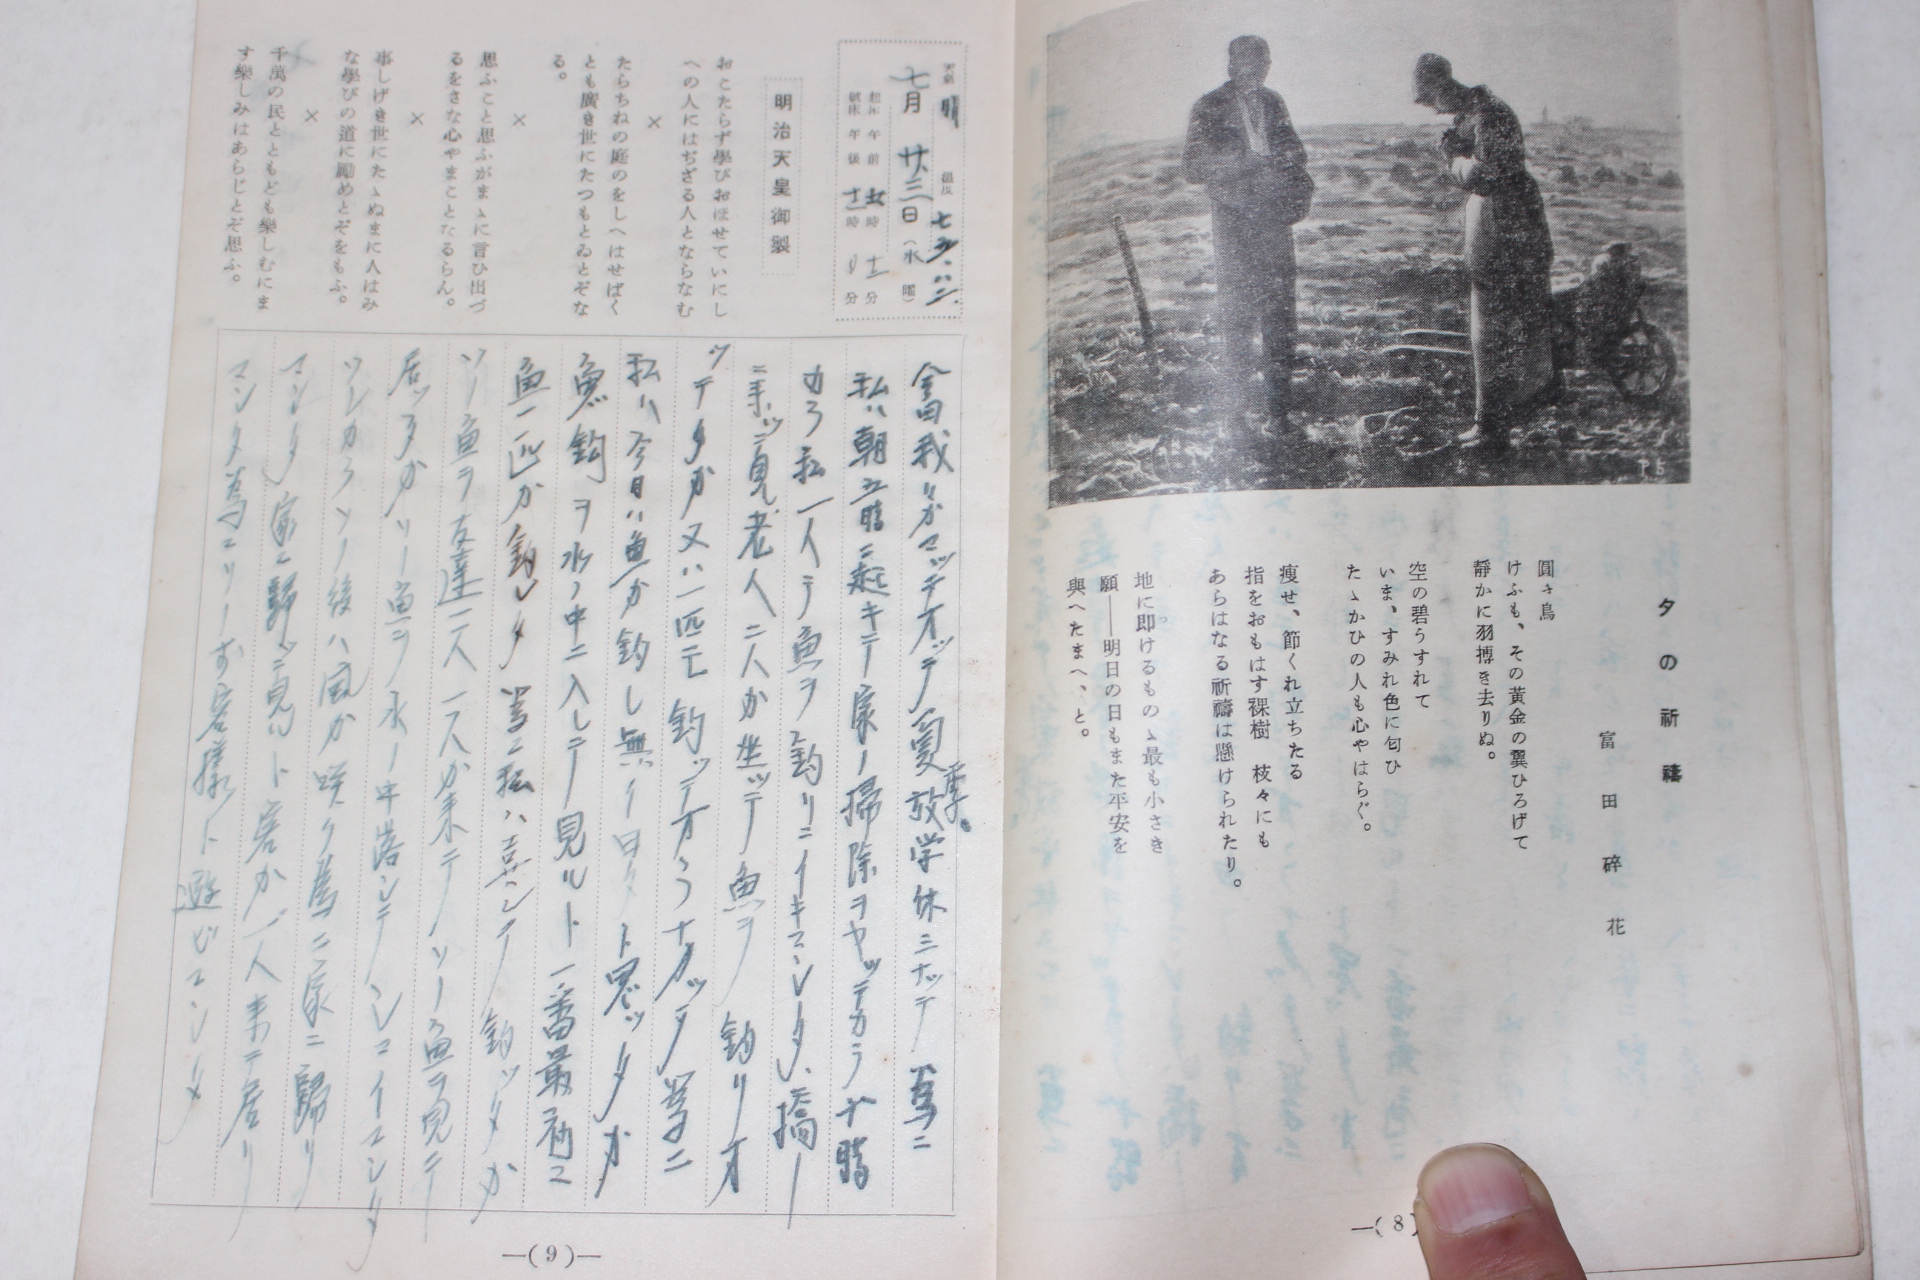 夕の祈禱
富田碎花
圓き鳥
けふも、その黄金の翼ひろげて
靜かに羽搏き去りぬ。
空の碧うすれて
いま、すみれ色に匂ひ
たゝかひの人も心やはらぐ。
瘦せ、節くれ立ちたる
指をおもはす裸樹 枝々にも
あらはなる祈禱は懸けられたり。
地に即けるものゝ最も小さき
願――明日の日もまた平安を
與へたまへ、と。
—(8)
天氣 晴 溫度 七五・八二
七月廿三日(水曜)
起床午前五時十二分
就床午後十一時〇分
明治天皇御製
おこたらず學びおほせていにし
への人にはぢざる人とならなむ
×
たらちねの庭のをしへはせばく
とも廣き世にたつもとゐとぞな
る。
×
思ふこと思ふがまゝに言ひ出づ
るをさな心やまことなるらん。
×
事しげき世にたゝぬまに人はみ
な學びの道に勵めとぞをもふ。
×
千萬の民とともども樂しむにま
す樂しみはあらじとぞ思ふ。
我々がマッテオッテ夏季放学休ミナッテ
私ハ朝五時ニ起キテ家ノ掃除ヲヤッテカラ十時
カラ私一人テ魚ヲ釣リニイキマシタ、橋ノ
老人二人か坐ッテ魚ヲ釣リオ
ッテタガ又ハ一匹モ釣ッテオラナカッタ
私ハ今日ハ魚カ釣し無イ日タト思ッタガ
魚釣ヲ水ノ中ニ入レテ見ルト一番最初ニ
魚一匹か釣レタ 私ハ喜ンテ釣ッタか
ソノ魚ヲ友達二人一人か来テソノ魚ヲ見テ
居ッタガソノ魚ヲ水ノ中落シテシマイマシタ
ソレカラソノ後ハ風か吹ク為ニ家ニ歸リ
マシタ 家ニ歸ッテ見ルトお客か一人来テ居リ
マシタ お客様ト遊ビマシタ
—(9)—